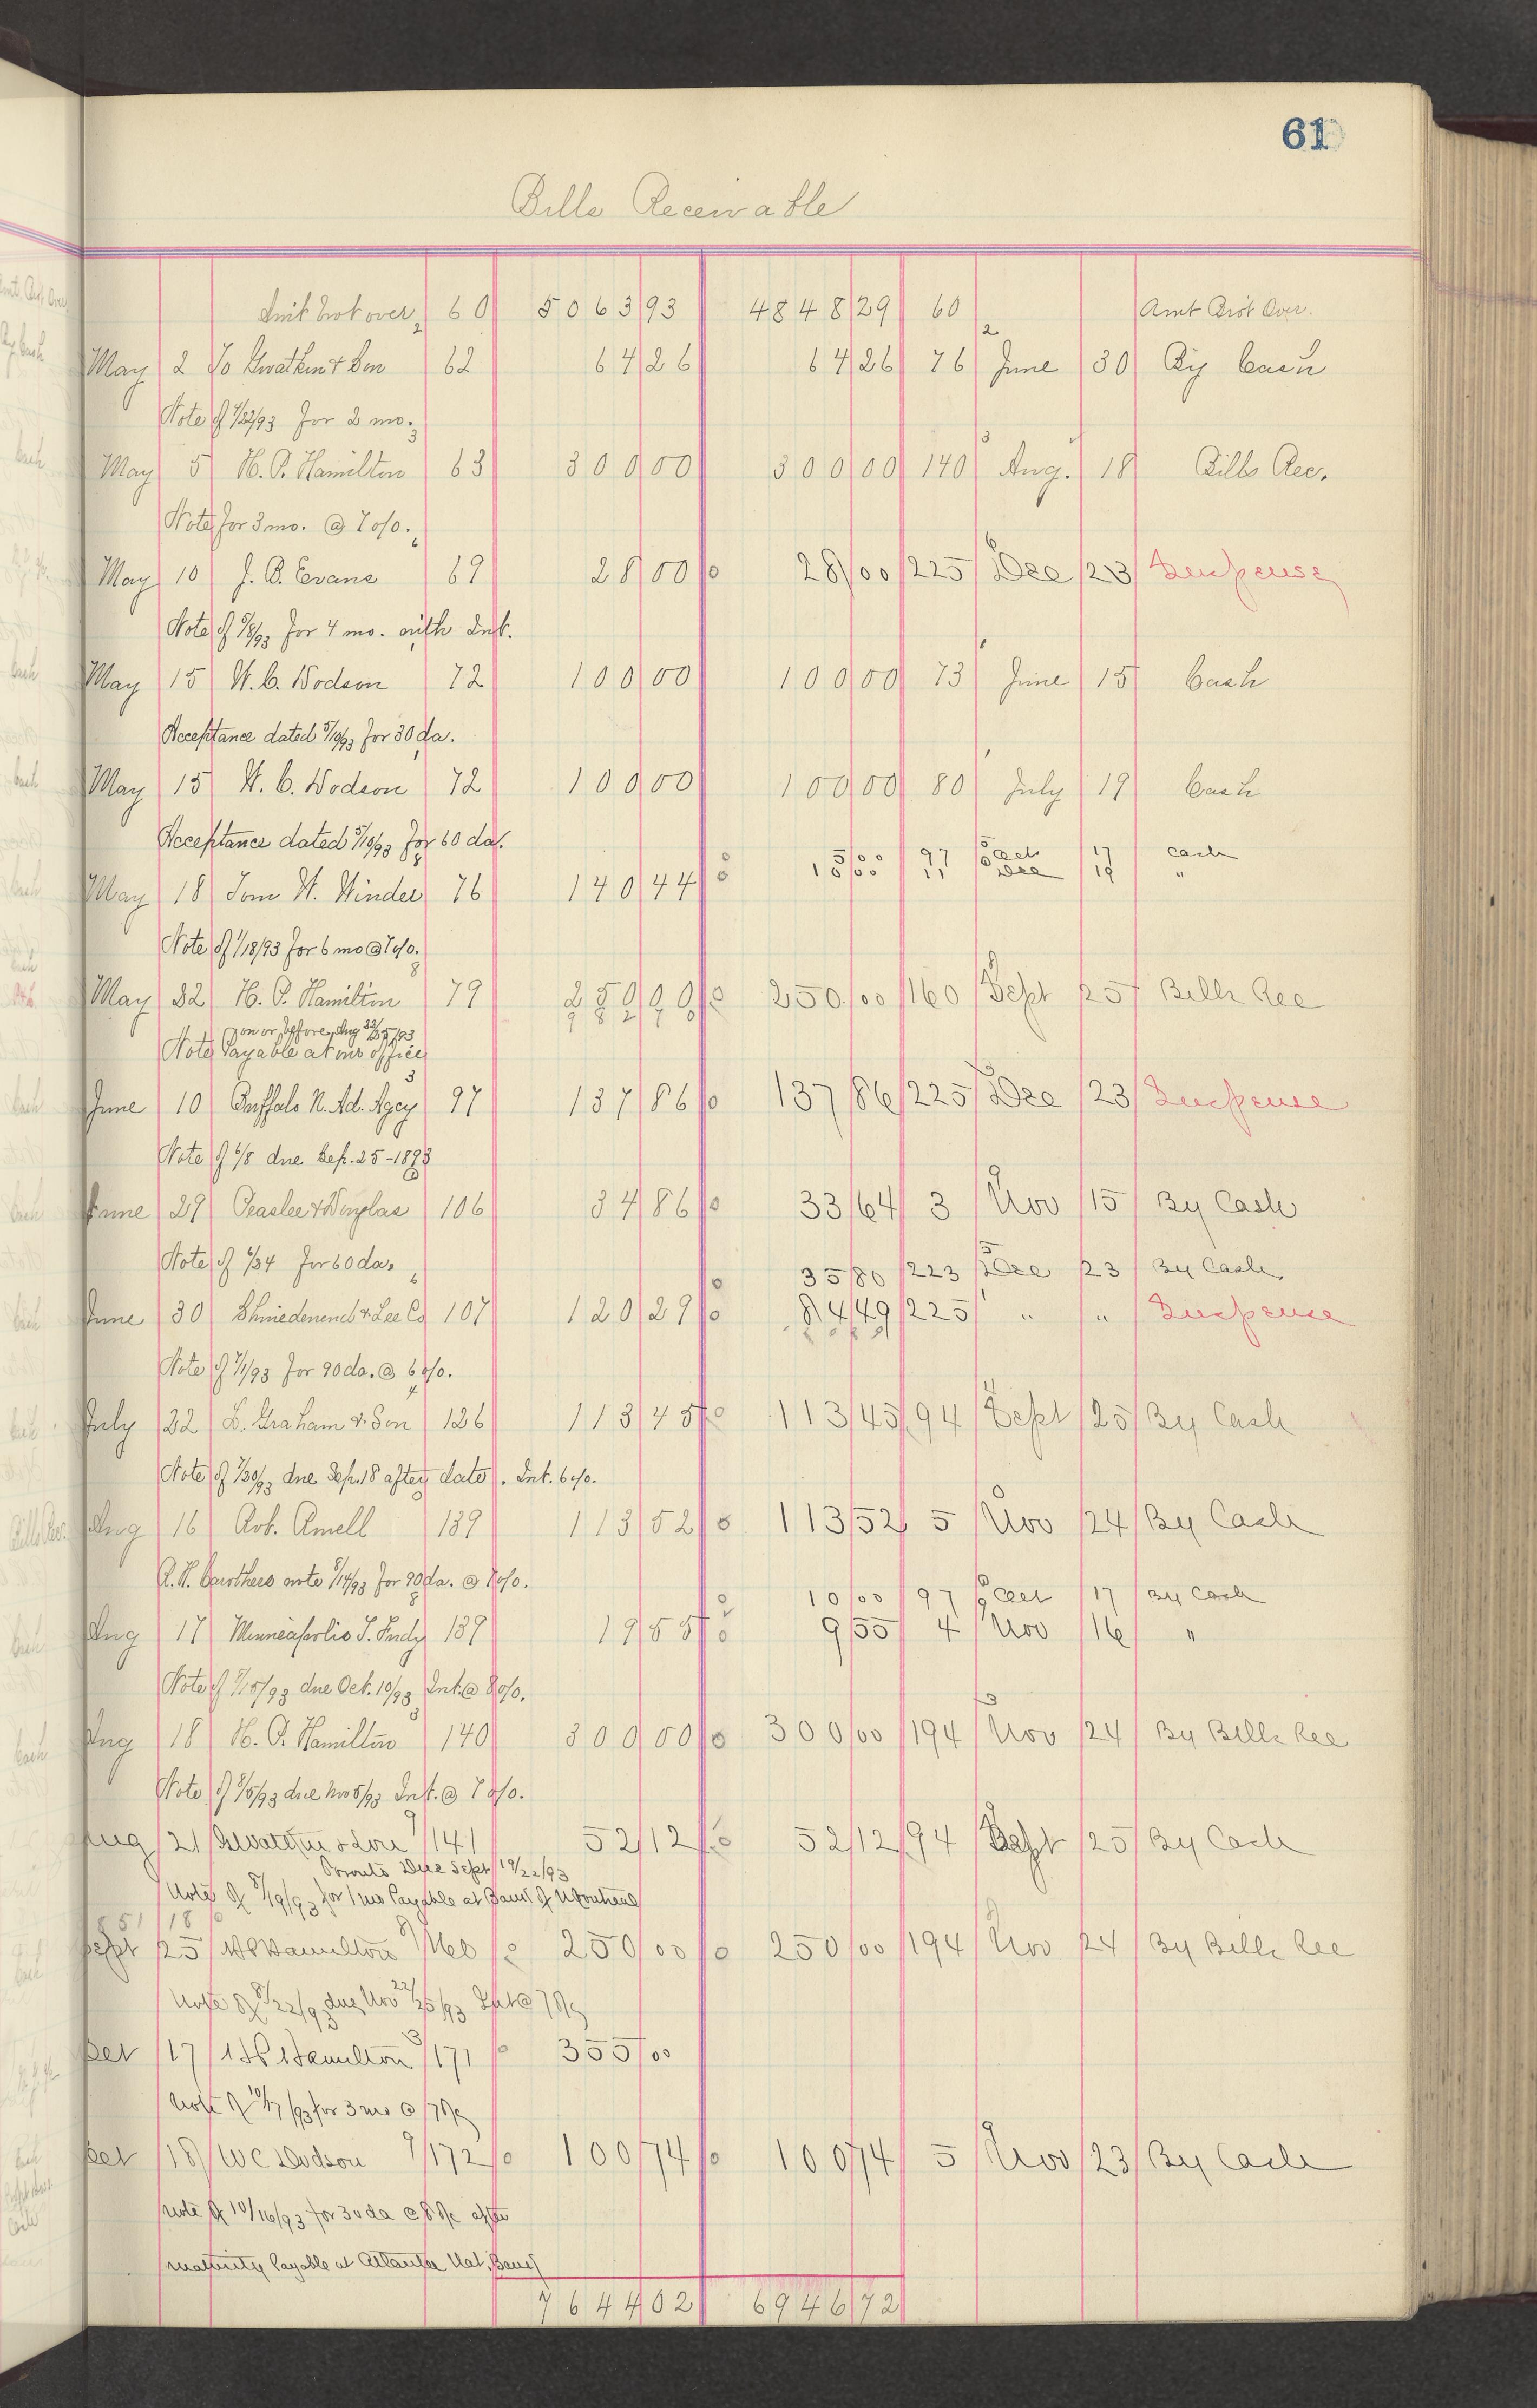 61
Bills Receivable
Amt brot over 60 5063 93 4848 29 60 Amt Brot Over.
May 2 To Gwathin & Son 62 64 26 64 26 76 June 30 By Cash
Note of 4/22/93 for 2 mo.
May 5 H. P. Hamilton 63 300 00 300 00 140 Aug. 18 Bills Rec.
Note for 3 mo. @ 7 o/o.
May 10 J. B. Evans 69 28 00 28 00 225 Dec 23 Suspense
Note of 5/8/93 for 4 mo. with Int.
May 15 W. C. Dodson 72 100 00 100 00 73 June 15 Cash
Acceptance dated 5/10/93 for 30 da.
May 15 W. C. Dodson 72 100 00 100 00 80 July 19 Cash
Acceptance dated 5/10/93 for 60 da.
15 00 97 Oct 17 Cash
May 18 Tom W. Winder 76 140 44 10 00 11 Dec 19 "
Note of 1/18/93 for 6 mo @ 7 o/o.
May 22 H. P. Hamilton 79 250 00 250 00 160 Sept 25 Bills Rec
on or before Aug 22/25/93
Note Payable at our office
June 10 Buffalo N. Ad. Agcy 97 137 86 137 86 225 Dec 23 Suspense
Note of 6/8 due Sep. 25-1893
June 29 Peaslee & 106 34 86 33 64 3 Nov 15 By Cash
Note of 6/24 for 60 da.
35 80 223 Dec 23 By Cash
June 30 & Lee Co 107 120 29 84 49 225 " " Suspense
Note of 7/1/93 for 90 da. @ 6 o/o.
July 22 L. Graham & Son 126 113 45 113 45 94 Sept 25 By Cash
Note of 7/20/93 due Sep. 18 after date. Int. 6 o/o.
Aug 16 Rob. Amell 139 113 52 113 52 5 Nov 24 By Cash
A. H. Carothers note 8/14/93 for 90 da. @ 8 o/o.
10 00 97 Oct 17 By Cash
Aug 17 Minneapolis T. Fndy 139 19 55 9 55 4 Nov 16 "
Note of 8/15/93 due Oct. 10/93 Int. @ 8 o/o.
Aug 18 H. P. Hamilton 140 300 00 300 00 194 Nov 24 By Bills Rec
Note of 8/5/93 due Nov 5/93 Int. @ 7 o/o.
Aug 21 Gwatkin & Son 141 52 12 52 12 94 Sept 25 By Cash
Toronto Due Sept 19/22/93
Note of 8/19/93 for 1 mo Payable at Bank of Montreal
Sept 25 H P Hamilton 160 250 00 250 00 194 Nov 24 By Bills Rec
Note of 8/22/93 due Nov 22/25/93 Int @ 7 %
Oct 17 H P Hamilton 171 355 00
Note of 10/17/93 for 3 mo @ 7 %
Oct 18 W C Dodson 172 100 74 100 74 5 Nov 23 By Cash
Note of 10/16/93 for 30 da @ 8 % after
maturity Payable at Atlanta Nat. Bank
7644 02 6946 72